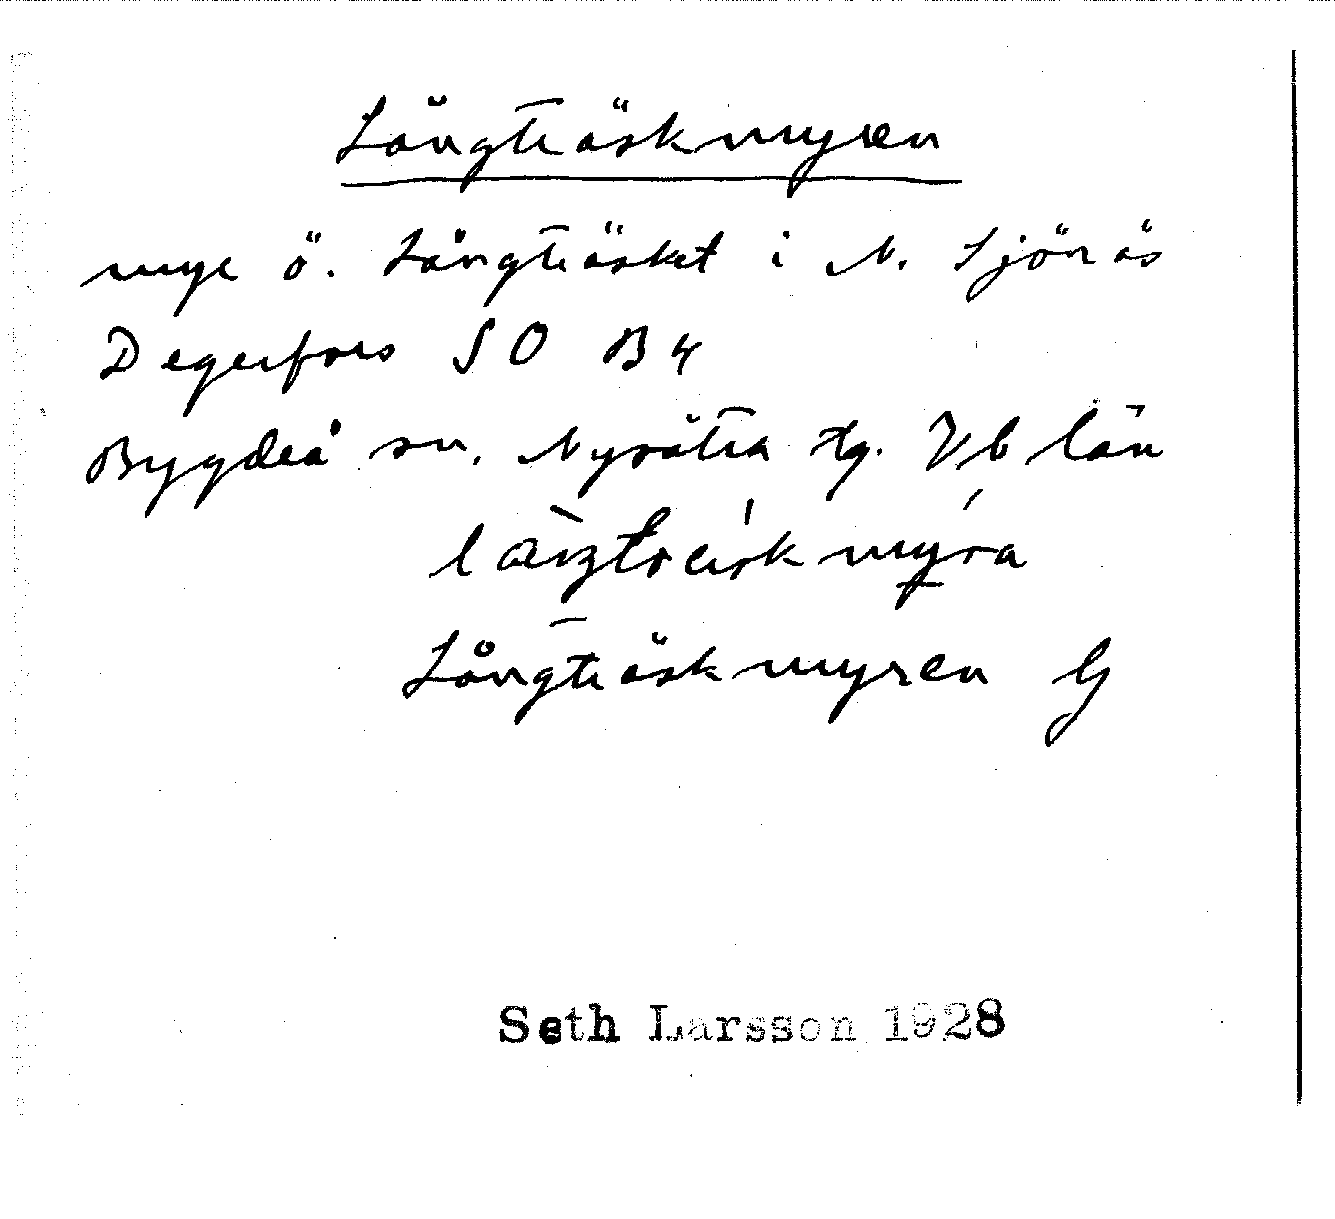 Långträskmyren
myr ö. Långträsket i N. Sjönäs
Degerfors SO B4
Bygdeå sn. Nysätra tg. Vb län
Långträskmyren G
Seth Larsson 1928